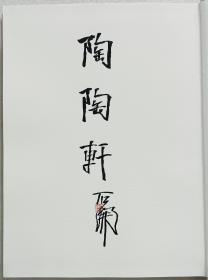 陶陶軒